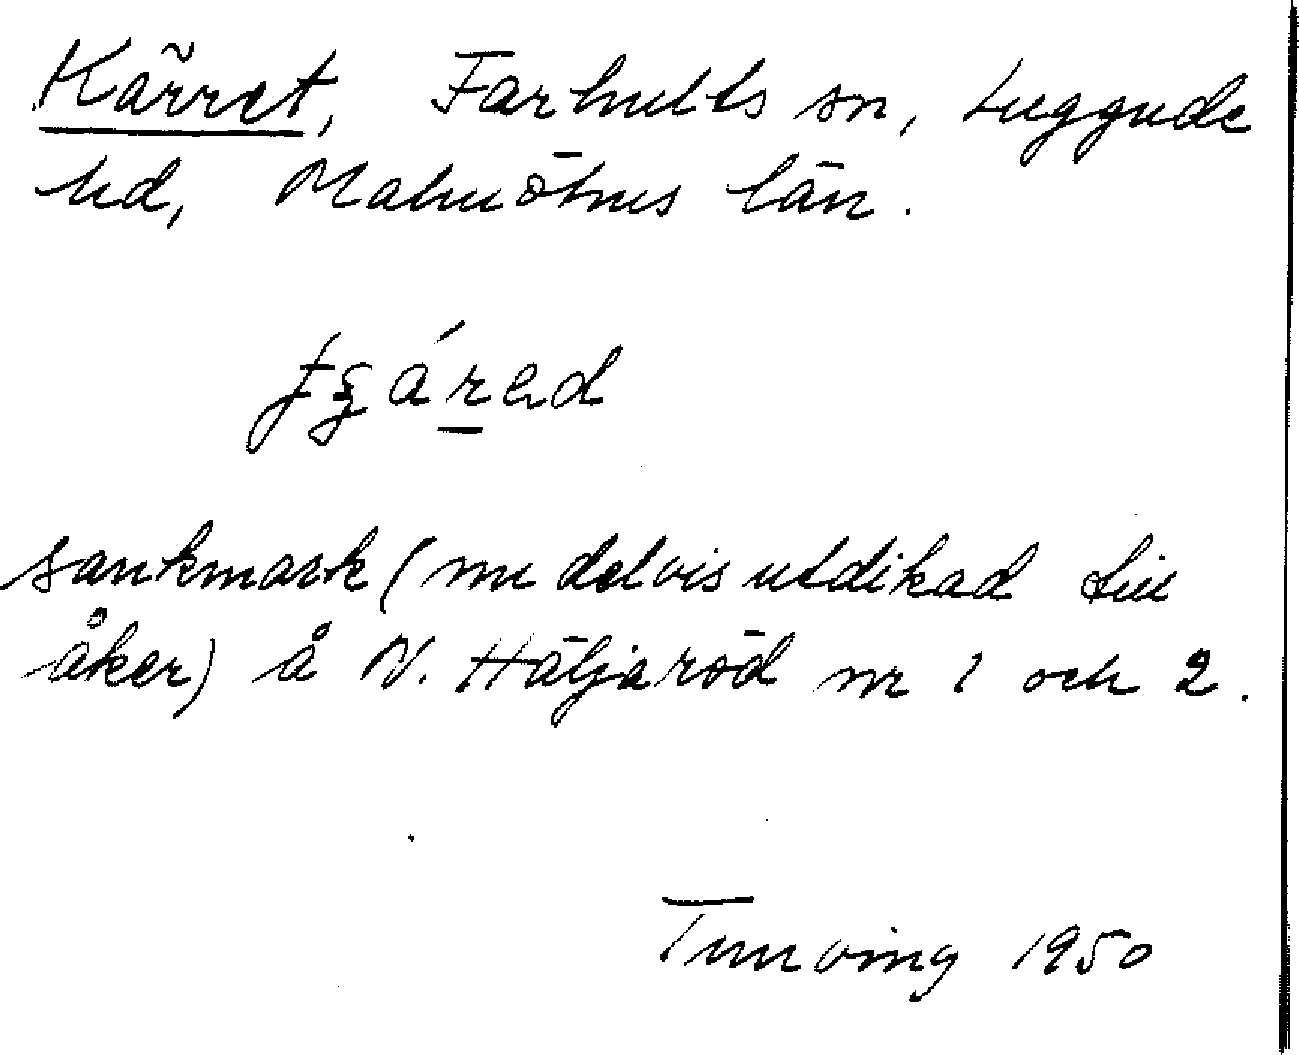 Kärret, Farhults sn, Luggude
hd, Malmöhus län.
sankmark (nu delvis utdikad till
åker) å N. Häljaröd nr 1 och 2.
Tunving 1950